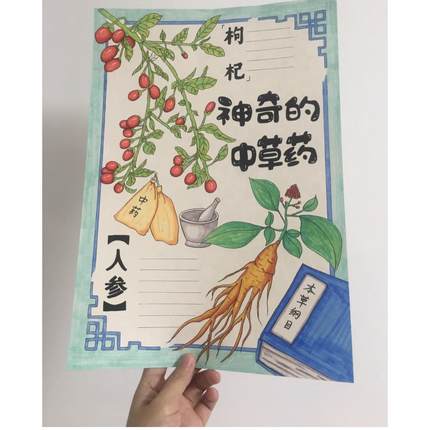 「枸杞」
神奇的
中草药
中药
【人参】
本草纲目